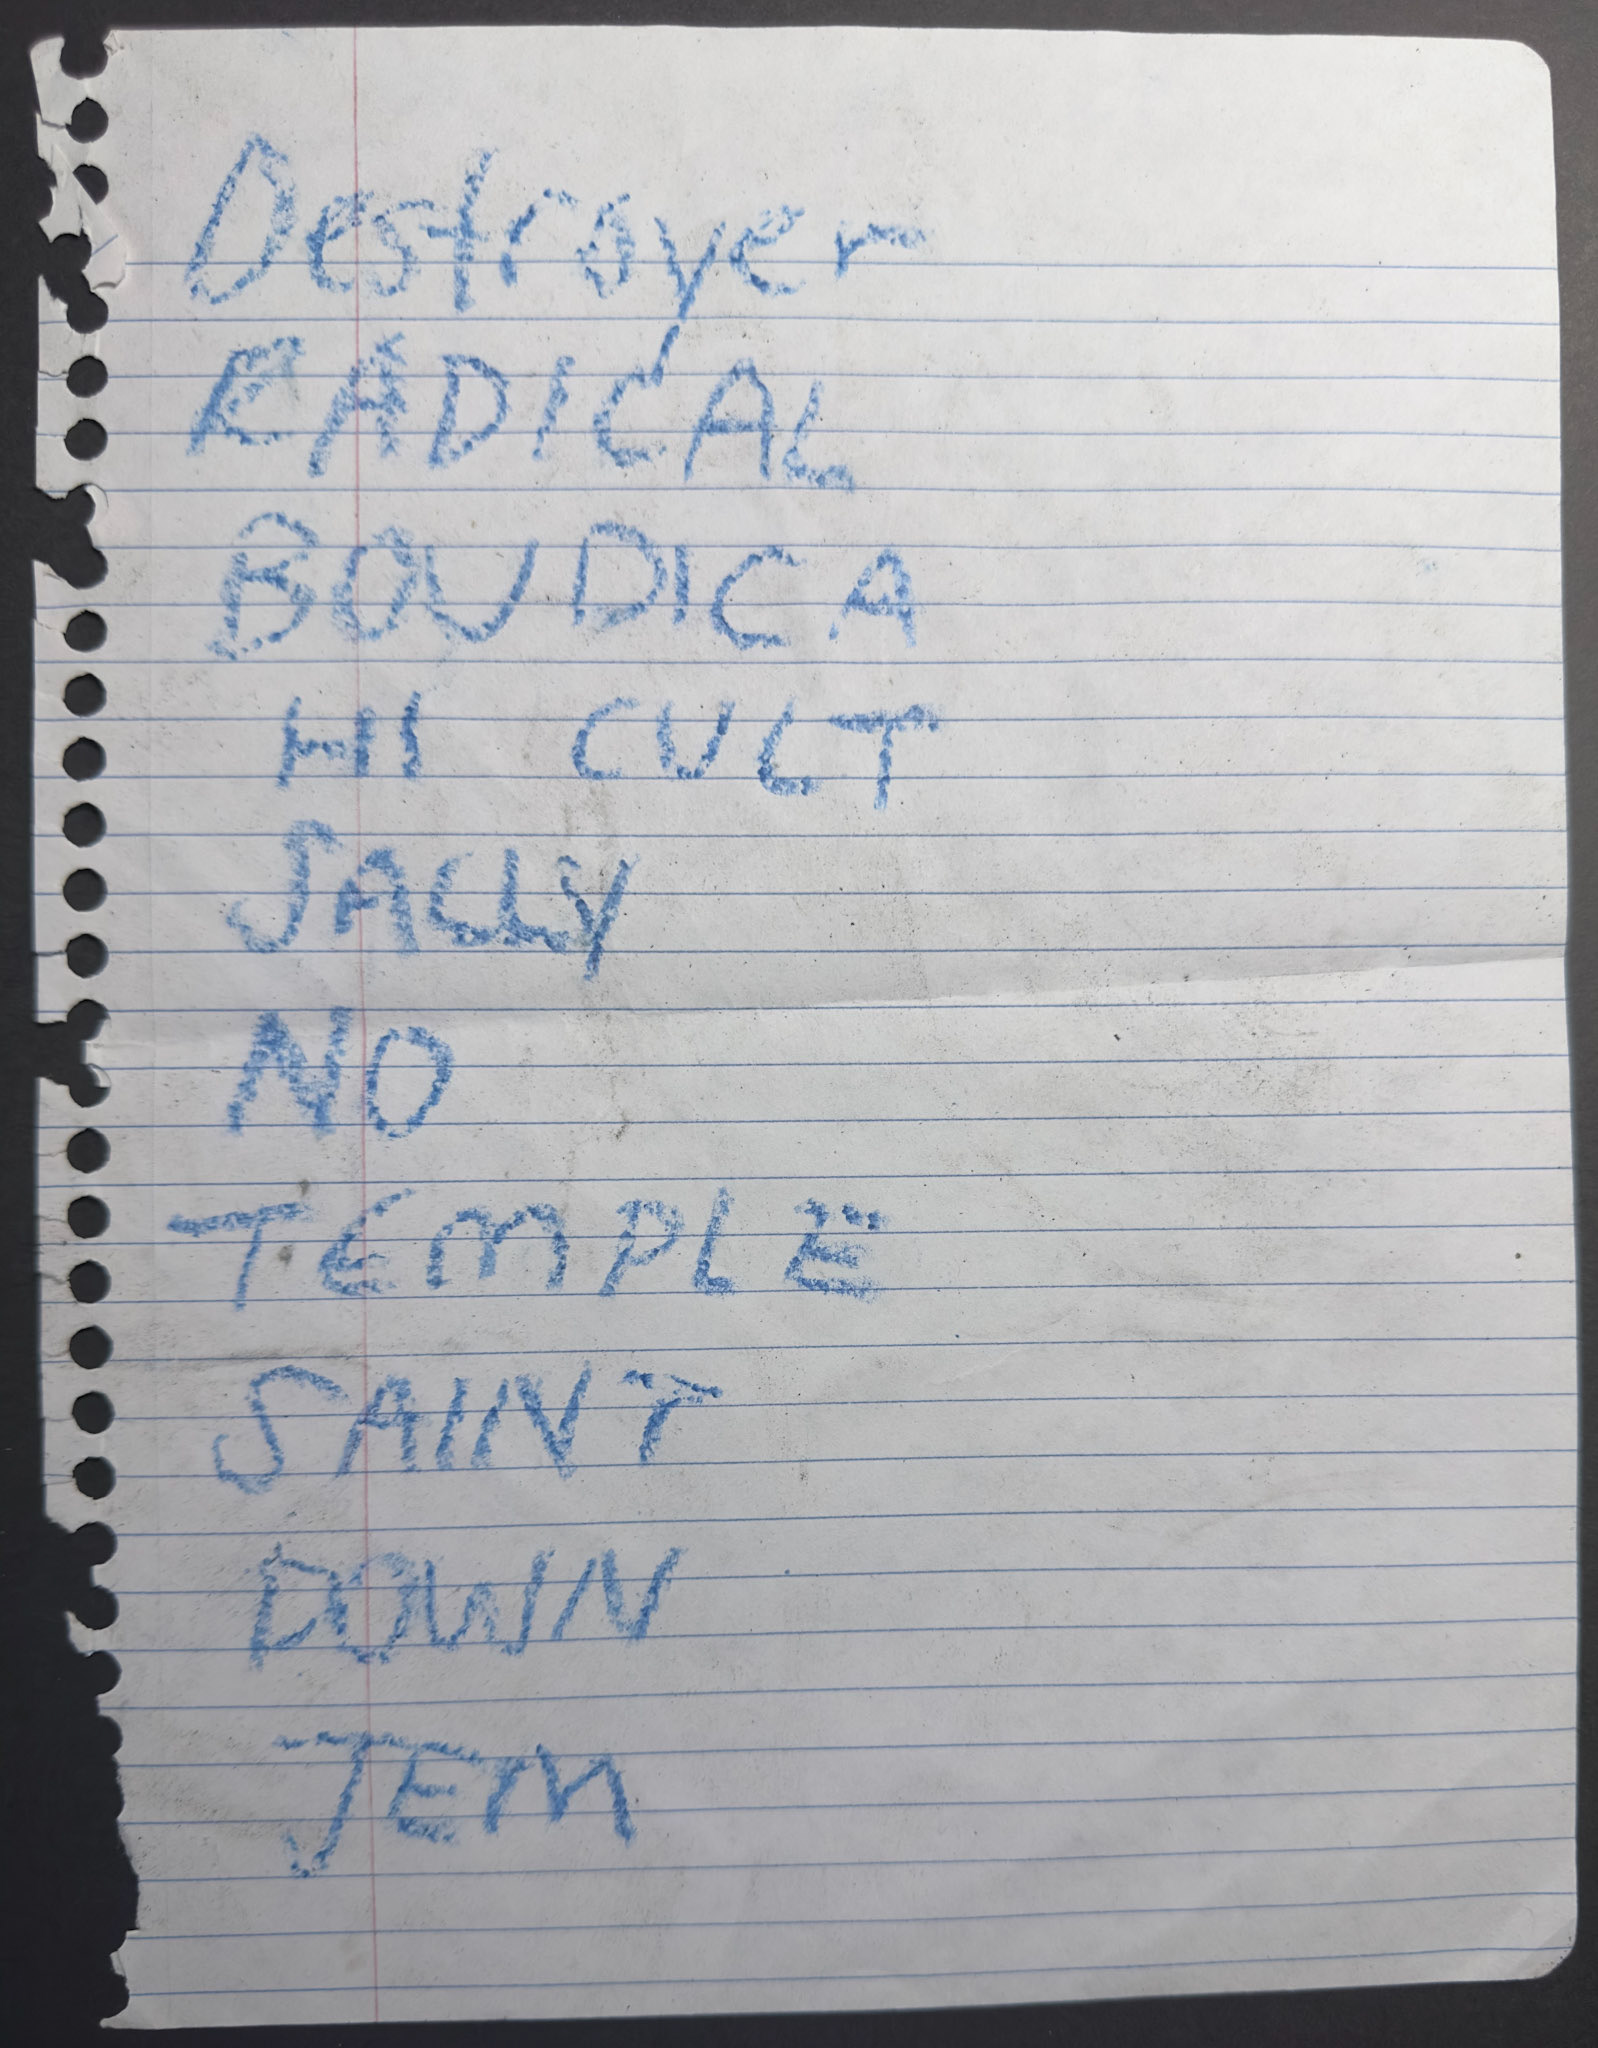 Destroyer
RADICAL
BOUDICA
HI CULT
SALLY
NO
TEMPLE
SAINT
DOWN
JEM